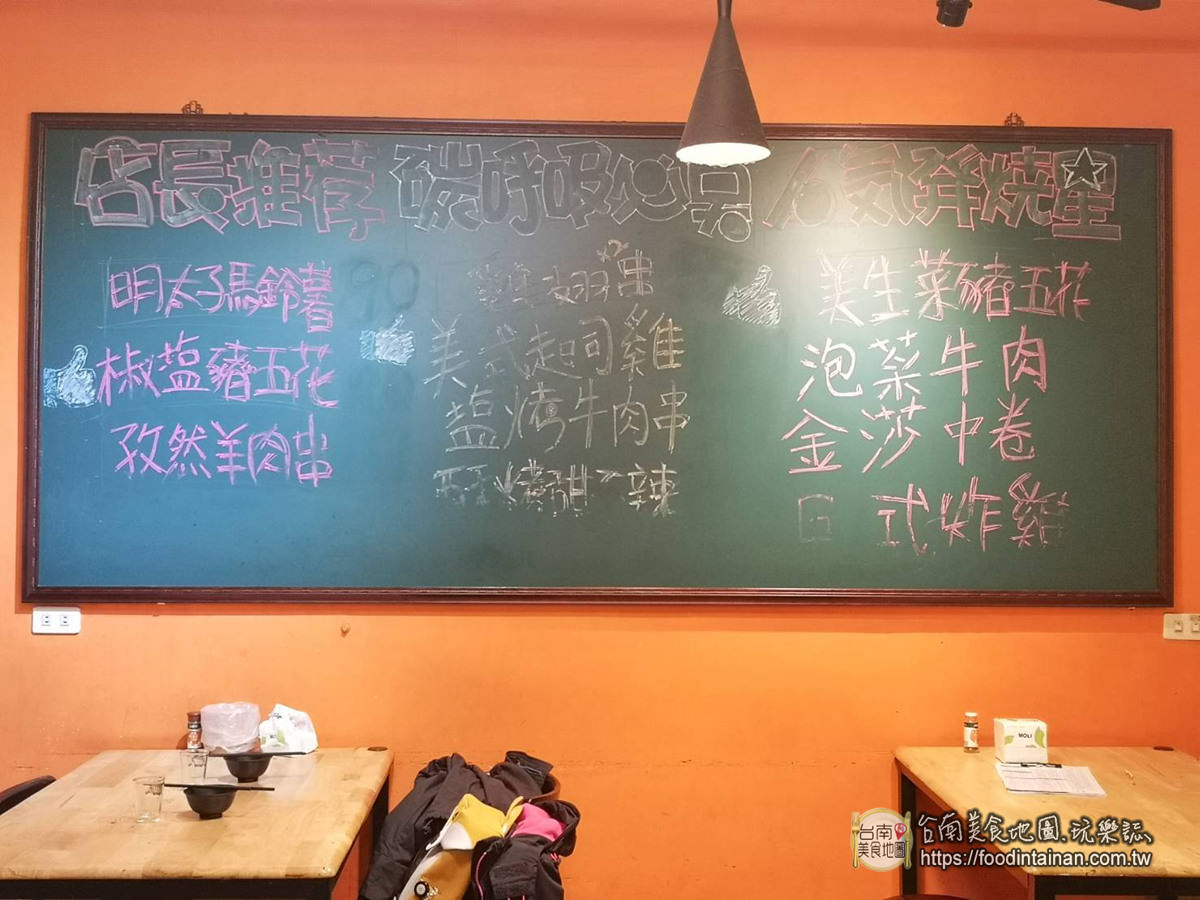 店長推荐
明太子馬鈴薯
椒塩豬五花
孜然羊肉串
碳呼吸心
雞翅串
美式起司雞
塩烤牛肉串
燒甜不辣
人氣發燒星
美生菜豬五花
泡菜牛肉
金沙中卷
日式炸雞
MOLI
台南美食地圖
台南美食地圖.玩樂誌
https://foodintainan.com.tw